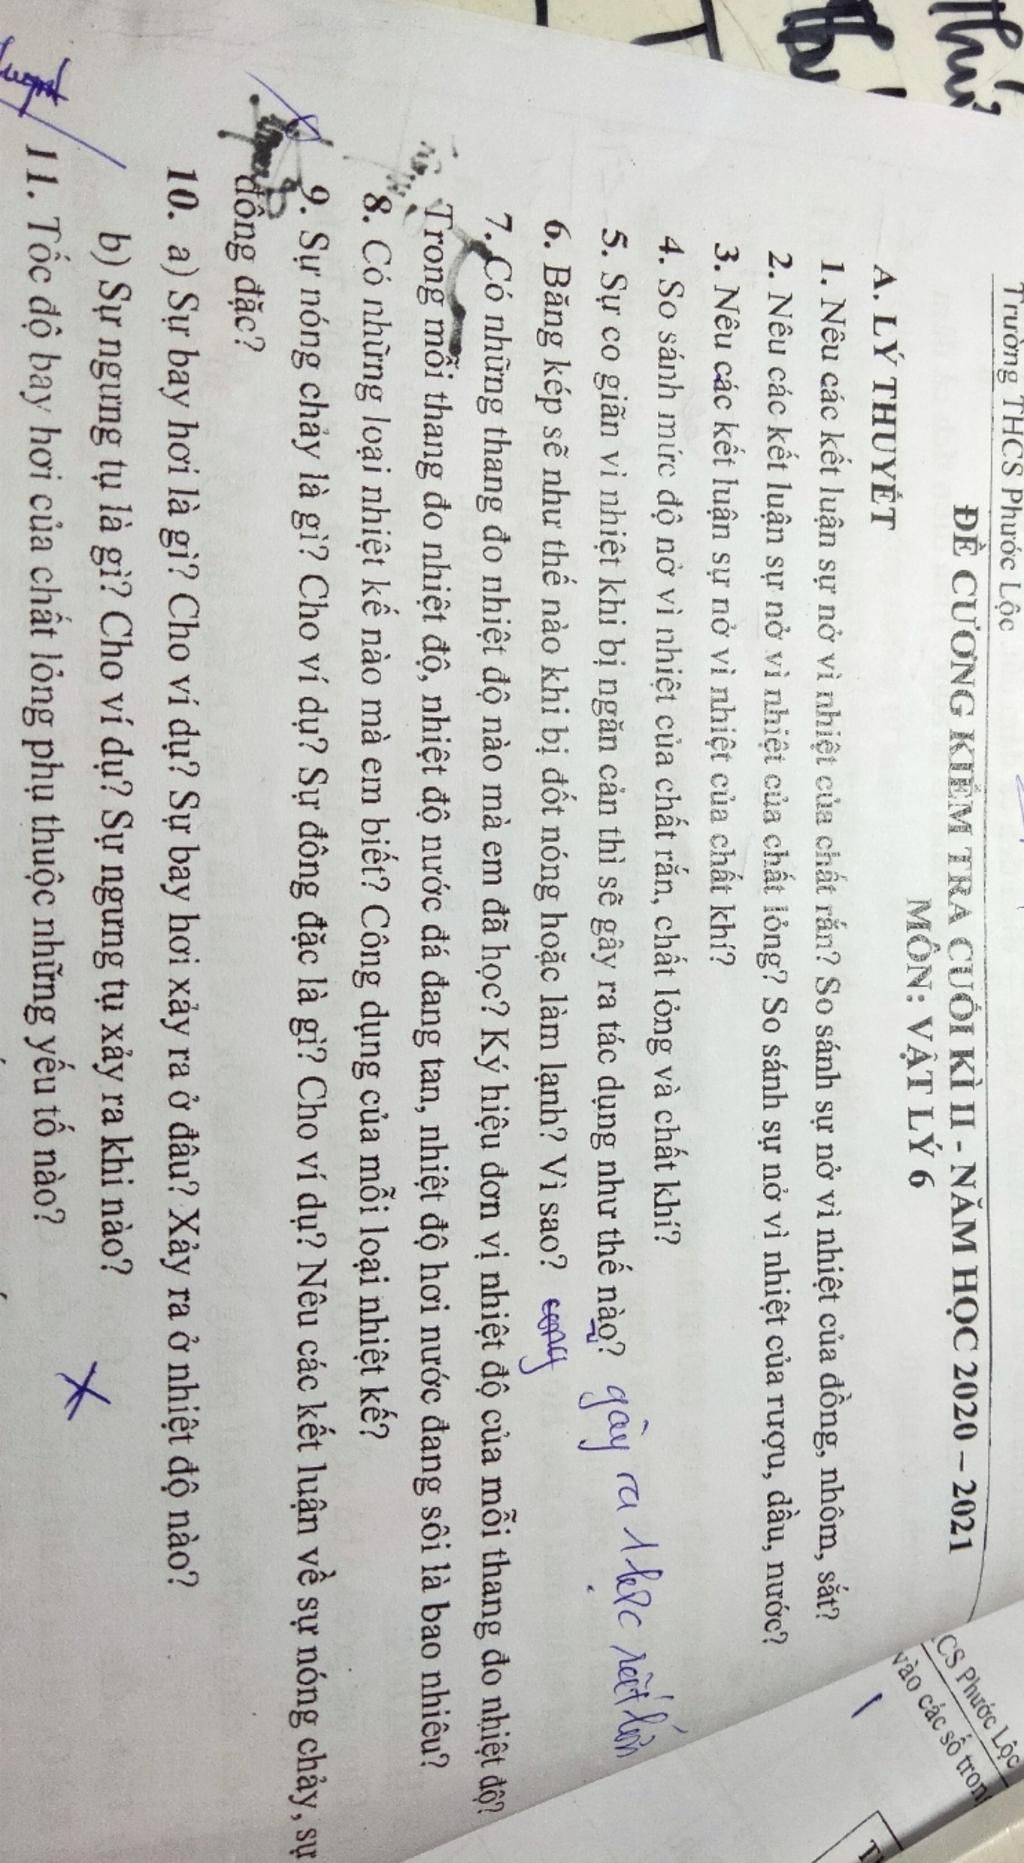 Trường THCS Phước Lộc
ĐỀ CƯƠNG KIỂM TRA CUỐI KÌ II - NĂM HỌC 2020 – 2021
MÔN: VẬT LÝ 6
A. LÝ THUYẾT
1. Nêu các kết luận sự nở vì nhiệt của chất rắn? So sánh sự nở vì nhiệt của đồng, nhôm, sắt?
2. Nêu các kết luận sự nở vì nhiệt của chất lỏng? So sánh sự nở vì nhiệt của rượu, dầu, nước?
3. Nêu các kết luận sự nở vì nhiệt của chất khí?
4. So sánh mức độ nở vì nhiệt của chất rắn, chất lỏng và chất khí?
5. Sự co giãn vì nhiệt khi bị ngăn cản thì sẽ gây ra tác dụng như thế nào? gây ra 1 lực rất lớn
6. Băng kép sẽ như thế nào khi bị đốt nóng hoặc làm lạnh? Vì sao? cong
7. Có những thang đo nhiệt độ nào mà em đã học? Ký hiệu đơn vị nhiệt độ của mỗi thang đo nhiệt độ?
Trong mỗi thang đo nhiệt độ, nhiệt độ nước đá đang tan, nhiệt độ hơi nước đang sôi là bao nhiêu?
8. Có những loại nhiệt kế nào mà em biết? Công dụng của mỗi loại nhiệt kế?
9. Sự nóng chảy là gì? Cho ví dụ? Sự đông đặc là gì? Cho ví dụ? Nêu các kết luận về sự nóng chảy, sự
đông đặc?
10. a) Sự bay hơi là gì? Cho ví dụ? Sự bay hơi xảy ra ở đâu? Xảy ra ở nhiệt độ nào?
b) Sự ngưng tụ là gì? Cho ví dụ? Sự ngưng tụ xảy ra khi nào?
11. Tốc độ bay hơi của chất lỏng phụ thuộc những yếu tố nào?
CS Phước Lộc
vào các số tron